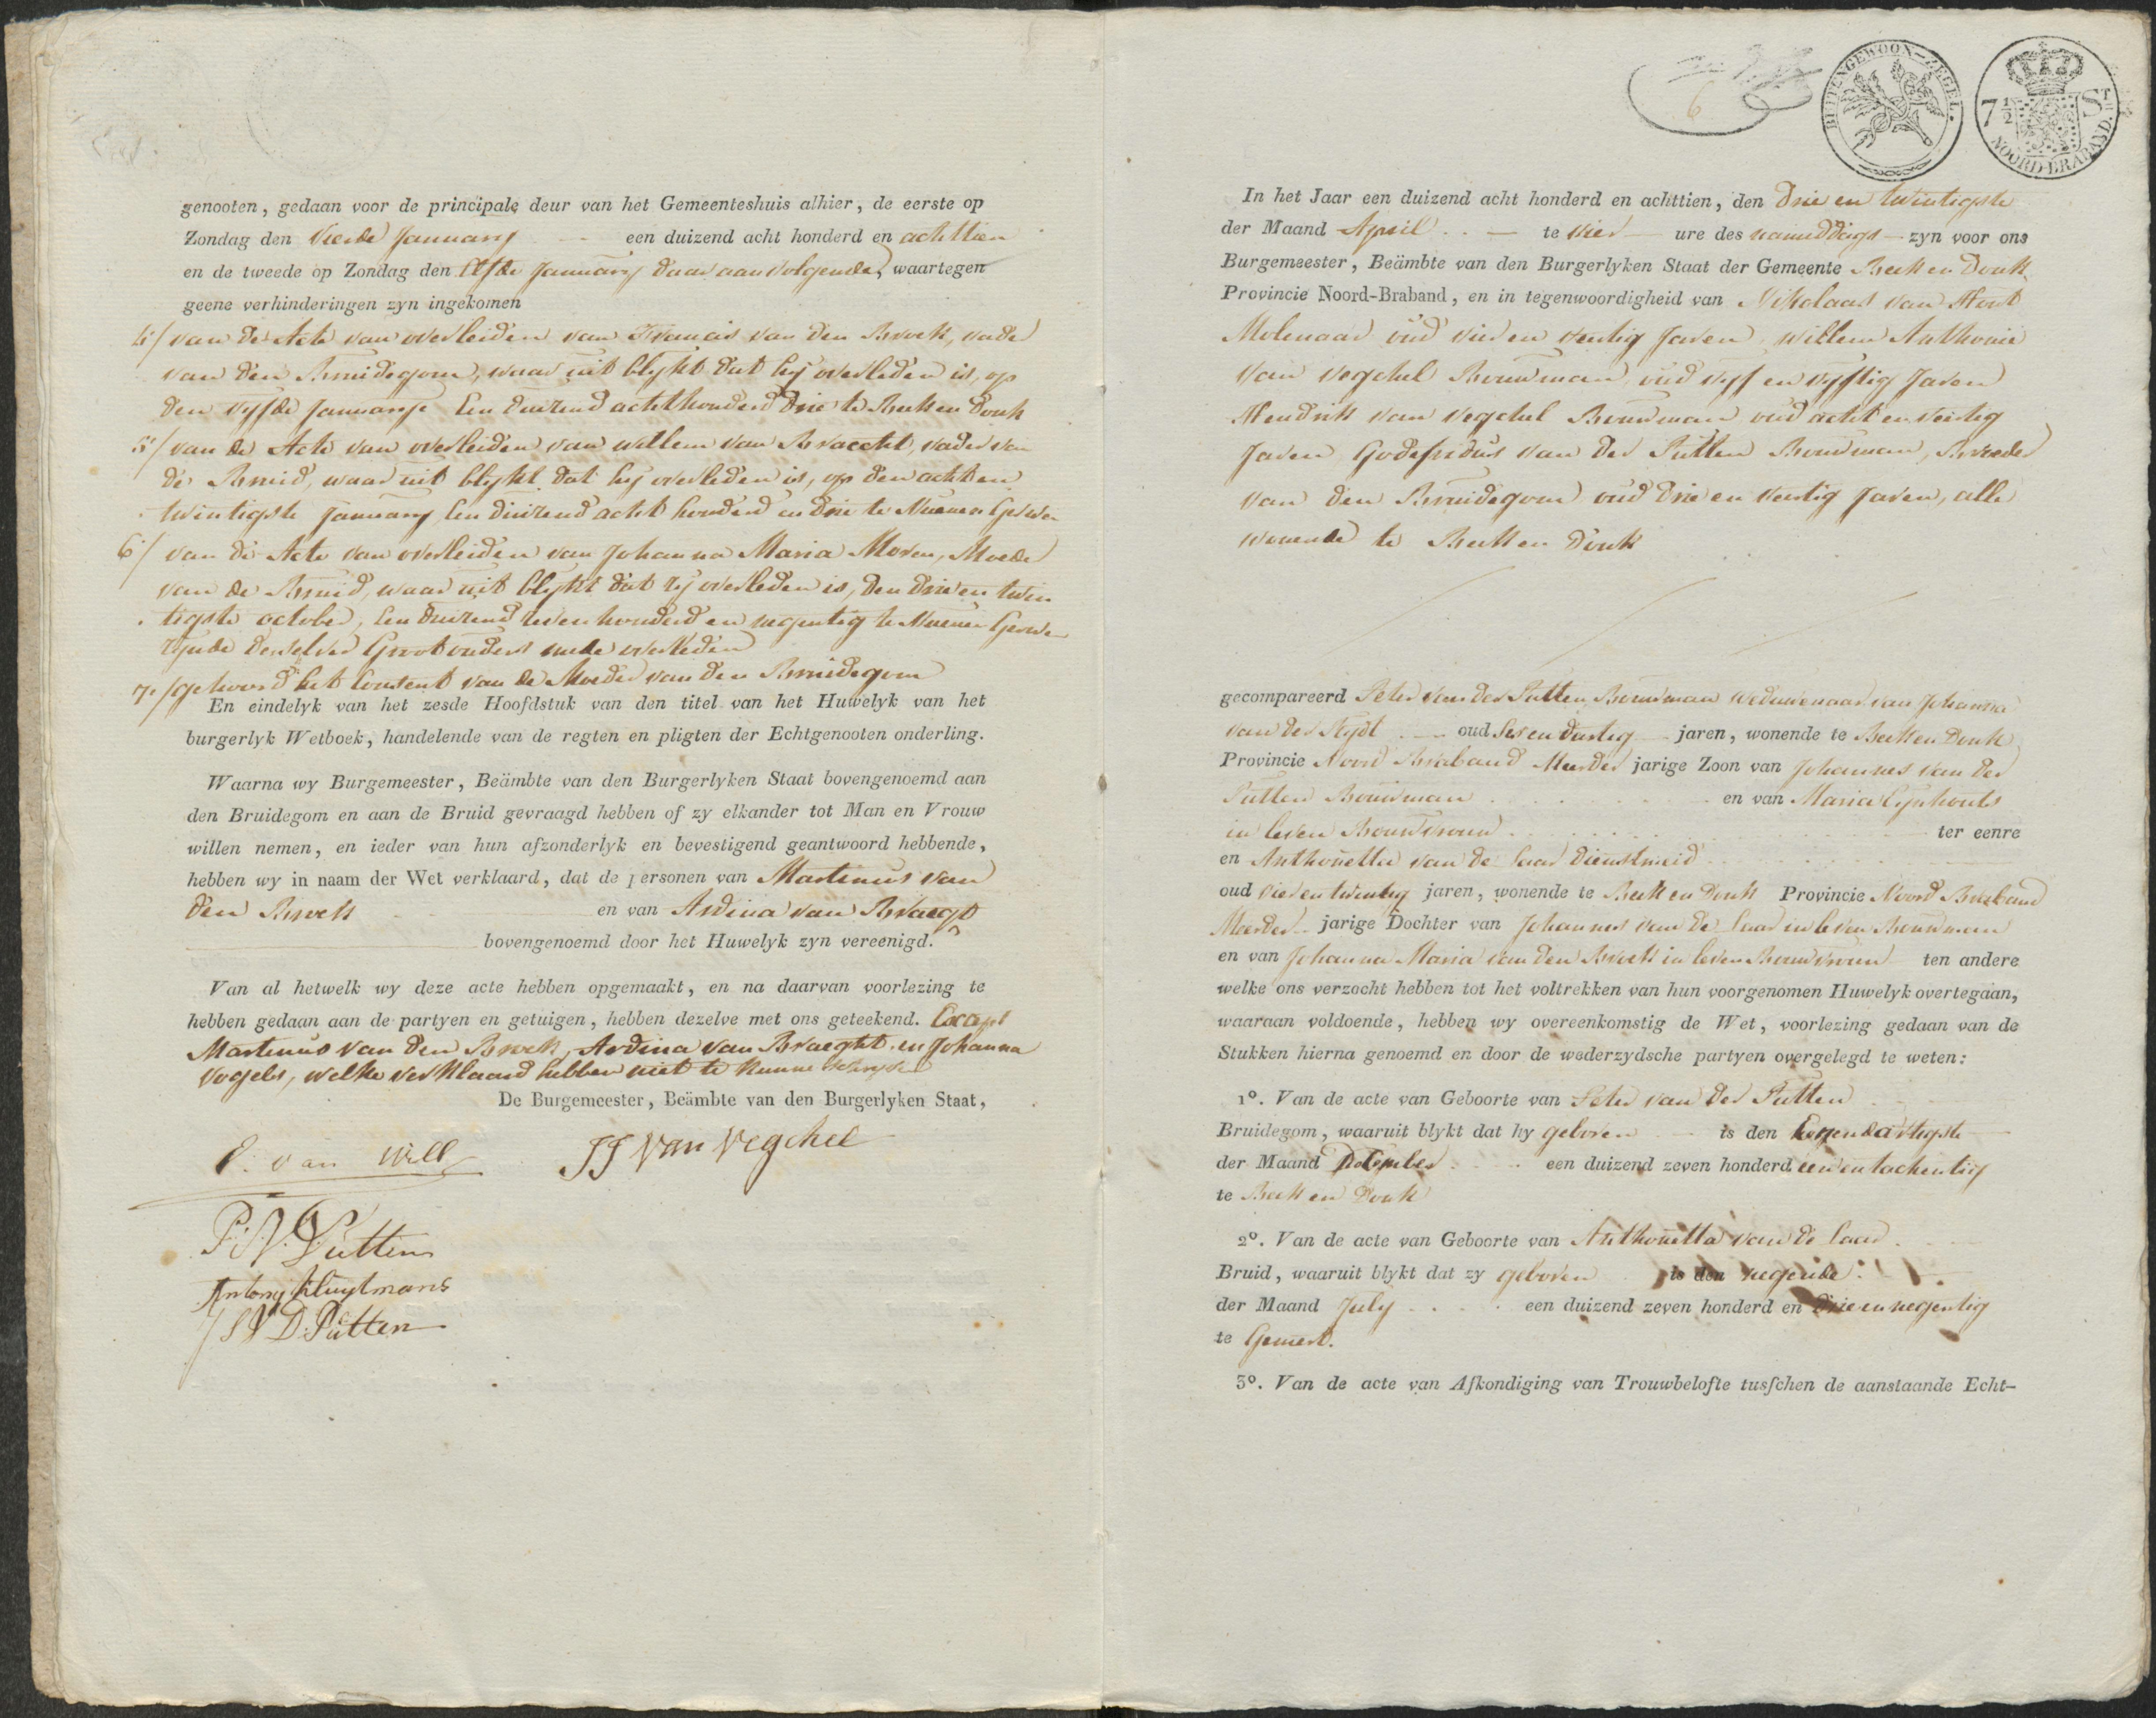 genooten, gedaan voor de principale deur van het Gemeenteshuis alhier, de eerste op
Zondag den Vierde January een duizend acht honderd en achttien
en de tweede op Zondag den Elfde January daar aan volgende, waartegen
geene verhinderingen zyn ingekomen
4/ van de Acte van overleiden van Francis van den Broek, vader
van den Bruidegom, waar uit blykt dat hy overleden is, op
den vyfde January Een duizend achthonderd drie te Beek en Donk
5/ van de Acte van overleiden van Willem van Braecht, vader van
de Bruid, waar uit blykt dat hy overleden is, op den acht en
twintigste January Een duizend acht honderd en drie te Nuenen Gerwen
6/ van de Acte van overleiden van Johanna Maria Moren, Moeder
van de Bruid, waar uit blykt dat zy overleden is, den drie en twin
tigste october, Een duizend seven honderd en negentig te Nuenen Gerwen
zynde derzelver Grootouders mede overleden
7/ gehoord het Consent van de Moeder van den Bruidegom
En eindelyk van het zesde Hoofdstuk van den titel van het Huwelyk van het
burgerlyk Wetboek, handelende van de regten en pligten der Echtgenooten onderling.
Waarna wy Burgemeester, Beämbte van den Burgerlyken Staat bovengenoemd aan
den Bruidegom en aan de Bruid gevraagd hebben of zy elkander tot Man en Vrouw
willen nemen, en ieder van hun afzonderlyk en bevestigend geantwoord hebbende,
hebben wy in naam der Wet verklaard, dat de personen van Martinus van
den Broek en van Ardina van Braegt
bovengenoemd door het Huwelyk zyn vereenigd.
Van al hetwelk wy deze acte hebben opgemaakt, en na daarvan voorlezing te
hebben gedaan aan de partyen en getuigen, hebben dezelve met ons geteekend. Except
Martinus van den Broek, Ardina van Braeght en Johanna
Vogels, welke verklaard hebben niet te kunne schryve
De Burgemeester, Beämbte van den Burgerlyken Staat,
van Will JJ van Veghel
P: V: D Putten
Antony Kluytmans
J S V D: Putten
BUITENGEWOON-ZEGEL.
7 1/2 S
NOORD-BRABAND.
6
In het Jaar een duizend acht honderd en achttien, den Drie en twintigste
der Maand April te Vier ure des namiddags zyn voor ons
Burgemeester, Beämbte van den Burgerlyken Staat der Gemeente Beek en Donk
Provincie Noord-Braband, en in tegenwoordigheid van Nikolaas van Hout
Molenaar oud vier en veertig Jaren Willem Anthonie
van Veghel Bouwman, oud vyf en vyftig Jaren
Hendrik van Veghel Bouwman oud acht en veertig
Jaren Godefridus van der Putten Bouwman, Broeder
van den Bruidegom oud drie en veertig Jaren, alle
wonende te Beek en Donk
gecompareerd Peter van der Putten Bouwman weduwenaar van Johanna
van der oud Ses en dertig jaren, wonende te Beek en Donk
Provincie Noord Braband Meerder jarige Zoon van Johannes van der
Putten Bouwman en van Maria
in leven Bouwvrouw ter eenre
en Anthonetta van de Laar dienstmeid
oud vier en twintig jaren, wonende te Beek en Donk Provincie Noord Braband
Meerder jarige Dochter van Johannes van de Laar in leven Bouwman
en van Johanna Maria van den Broek in leven Bouwvrouw ten andere
welke ons verzocht hebben tot het voltrekken van hun voorgenomen Huwelyk overtegaan,
waaraan voldoende, hebben wy overeenkomstig de Wet, voorlezing gedaan van de
Stukken hierna genoemd en door de wederzydsche partyen overgelegd te weten:
1º. Van de acte van Geboorte van Peter van der Putten
Bruidegom, waaruit blykt dat hy geboren is den Eenendartigste
der Maand December een duizend zeven honderd een en tachentig
te Beek en Donk
2º. Van de acte van Geboorte van Anthonetta van de Laar
Bruid, waaruit blykt dat zy geboren is den negende
der Maand July een duizend zeven honderd en drie en negentig
te Gemert.
3º. Van de acte van Afkondiging van Trouwbelofte tusschen de aanstaande Echt-